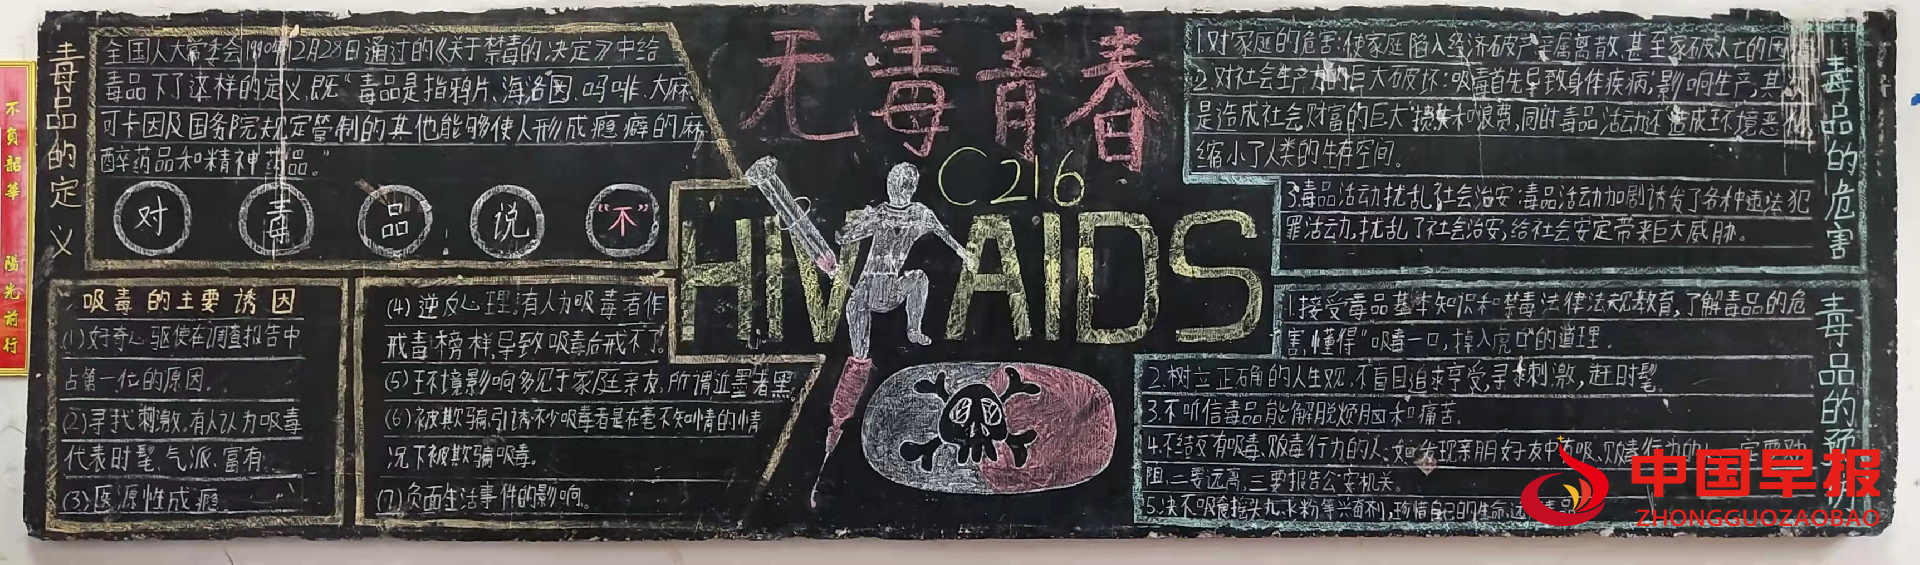 不負韶華 陽光前行
毒品的定义
全国人大常委会1990年12月28日通过的《关于禁毒的决定》中给
毒品下了这样的定义,既"毒品是指鸦片、海洛因、吗啡、大麻
可卡因及国务院规定管制的其他能够使人形成瘾癖的麻
醉药品和精神药品。"
对 毒 品 说 "不"
吸毒的主要诱因
(1)好奇心驱使在调查报告中
占第一位的原因.
(2)寻找刺激.有人认为吸毒
代表时髦、气派、富有
(3)医源性成瘾.
(4)逆反心理:有人为吸毒者作
戒毒榜样,导致吸毒后戒不了.
(5)环境影响多见于家庭亲友,所谓近墨者黑.
(6)被欺骗,引诱不少吸毒者是在毫不知情的小情
况下被欺骗吸毒。
(7)负面生活事件的影响。
无毒青春
C216
HIV AIDS
毒品的危害
1.对家庭的危害:使家庭陷入经济破产亲属离散,甚至家破人亡的困
2.对社会生产力的巨大破坏:吸毒首先导致身体疾病,影响生产,其
是造成社会财富的巨大损失和浪费,同时毒品活动还造成环境恶化,
缩小了人类的生存空间。
3.毒品活动扰乱社会治安:毒品活动加剧诱发了各种违法犯
罪活动,扰乱了社会治安,给社会安定带来巨大威胁。
毒品的预
1.接受毒品基本知识和禁毒法律法规教育,了解毒品的危
害,懂得"吸毒一口,掉入虎口"的道理.
2.树立正确的人生观,不盲目追求享受,寻求刺激,赶时髦.
3.不听信毒品能解脱烦脑和痛苦.
4.不结交有吸毒、贩毒行为的人.如发现亲朋好友中有吸、贩毒行为的人一定要劝
阻,二要远离,三要报告公安机关.
5.决不吸食摇头丸、冰粉等兴奋剂,珍惜自己的生命,远
中国早报
ZHONGGUOZAOBAO